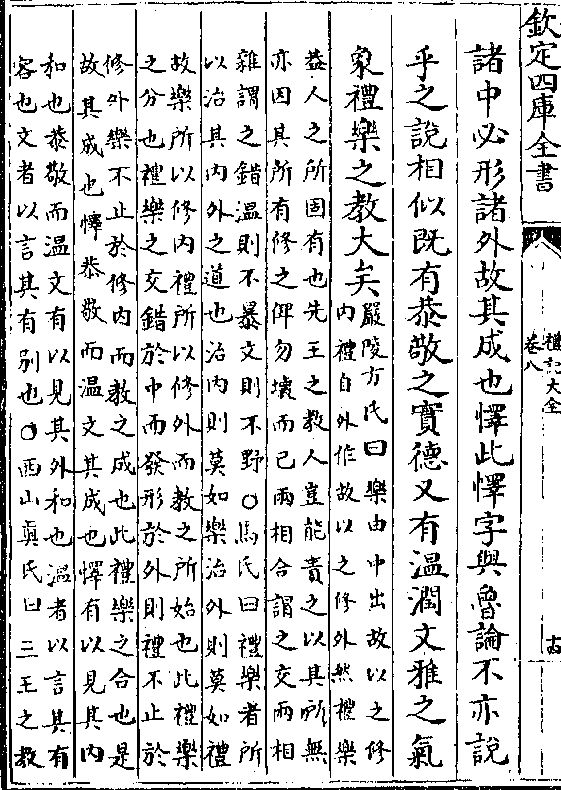 欽定四庫全書
禮記大全
卷八
十四
諸中必形諸外故其成也懌此懌字與魯論不亦說
乎之說相似既有恭敬之實德又有溫潤文雅之氣
象禮樂之教大矣
嚴陵方氏曰樂由中出故以之修
內禮自外作故以之修外然禮樂
蓋人之所固有也先王之教人豈能責之以其所無
亦因其所有修之俾勿壞而已兩相合謂之交兩相
雜謂之錯溫則不暴文則不野○馬氏曰禮樂者所
以治其內外之道也治內則莫如樂治外則莫如禮
故樂所以修內禮所以修外而教之所始也此禮樂
之分也禮樂之交錯於中而發形於外則禮不止於
修外樂不止於修內而教之成也此禮樂之合也是
故其成也懌恭敬而溫文其成也懌有以見其內
和也恭敬而溫文有以見其外和也溫者以言其有
容也文者以言其有別也○西山真氏曰三王之教